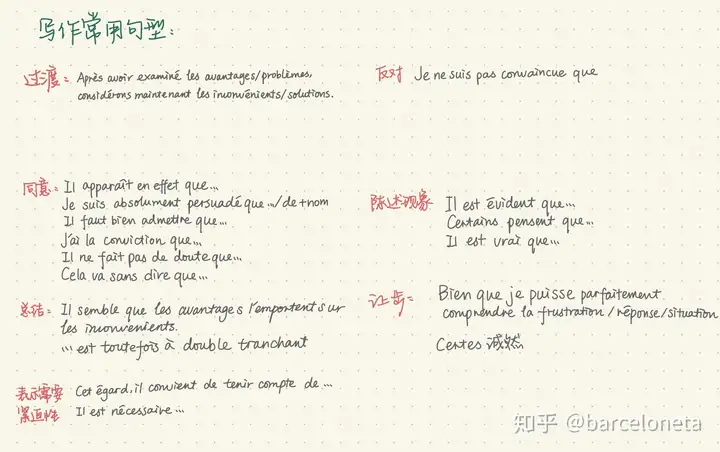 写作常用句型:
过渡: Après avoir examiné les avantages/problèmes,
considérons maintenant les inconvénients/solutions.
反对 Je ne suis pas convaincue que
同意: Il apparaît en effet que...
Je suis absolument persuadé que .../de+nom
Il faut bien admettre que...
J'ai la conviction que...
Il ne fait pas de doute que...
Cela va sans dire que...
陈述现象 Il est évident que...
Certains pensent que...
Il est vrai que...
总结: Il semble que les avantages l'emportent sur
les inconvénients.
... est toutefois à double tranchant
让步: Bien que je puisse parfaitement
comprendre la frustration/réponse/situation
Certes 诚然
表示需要 Cet égard, il convient de tenir compte de ...
紧迫性 Il est nécessaire ...
知乎 @barceloneta